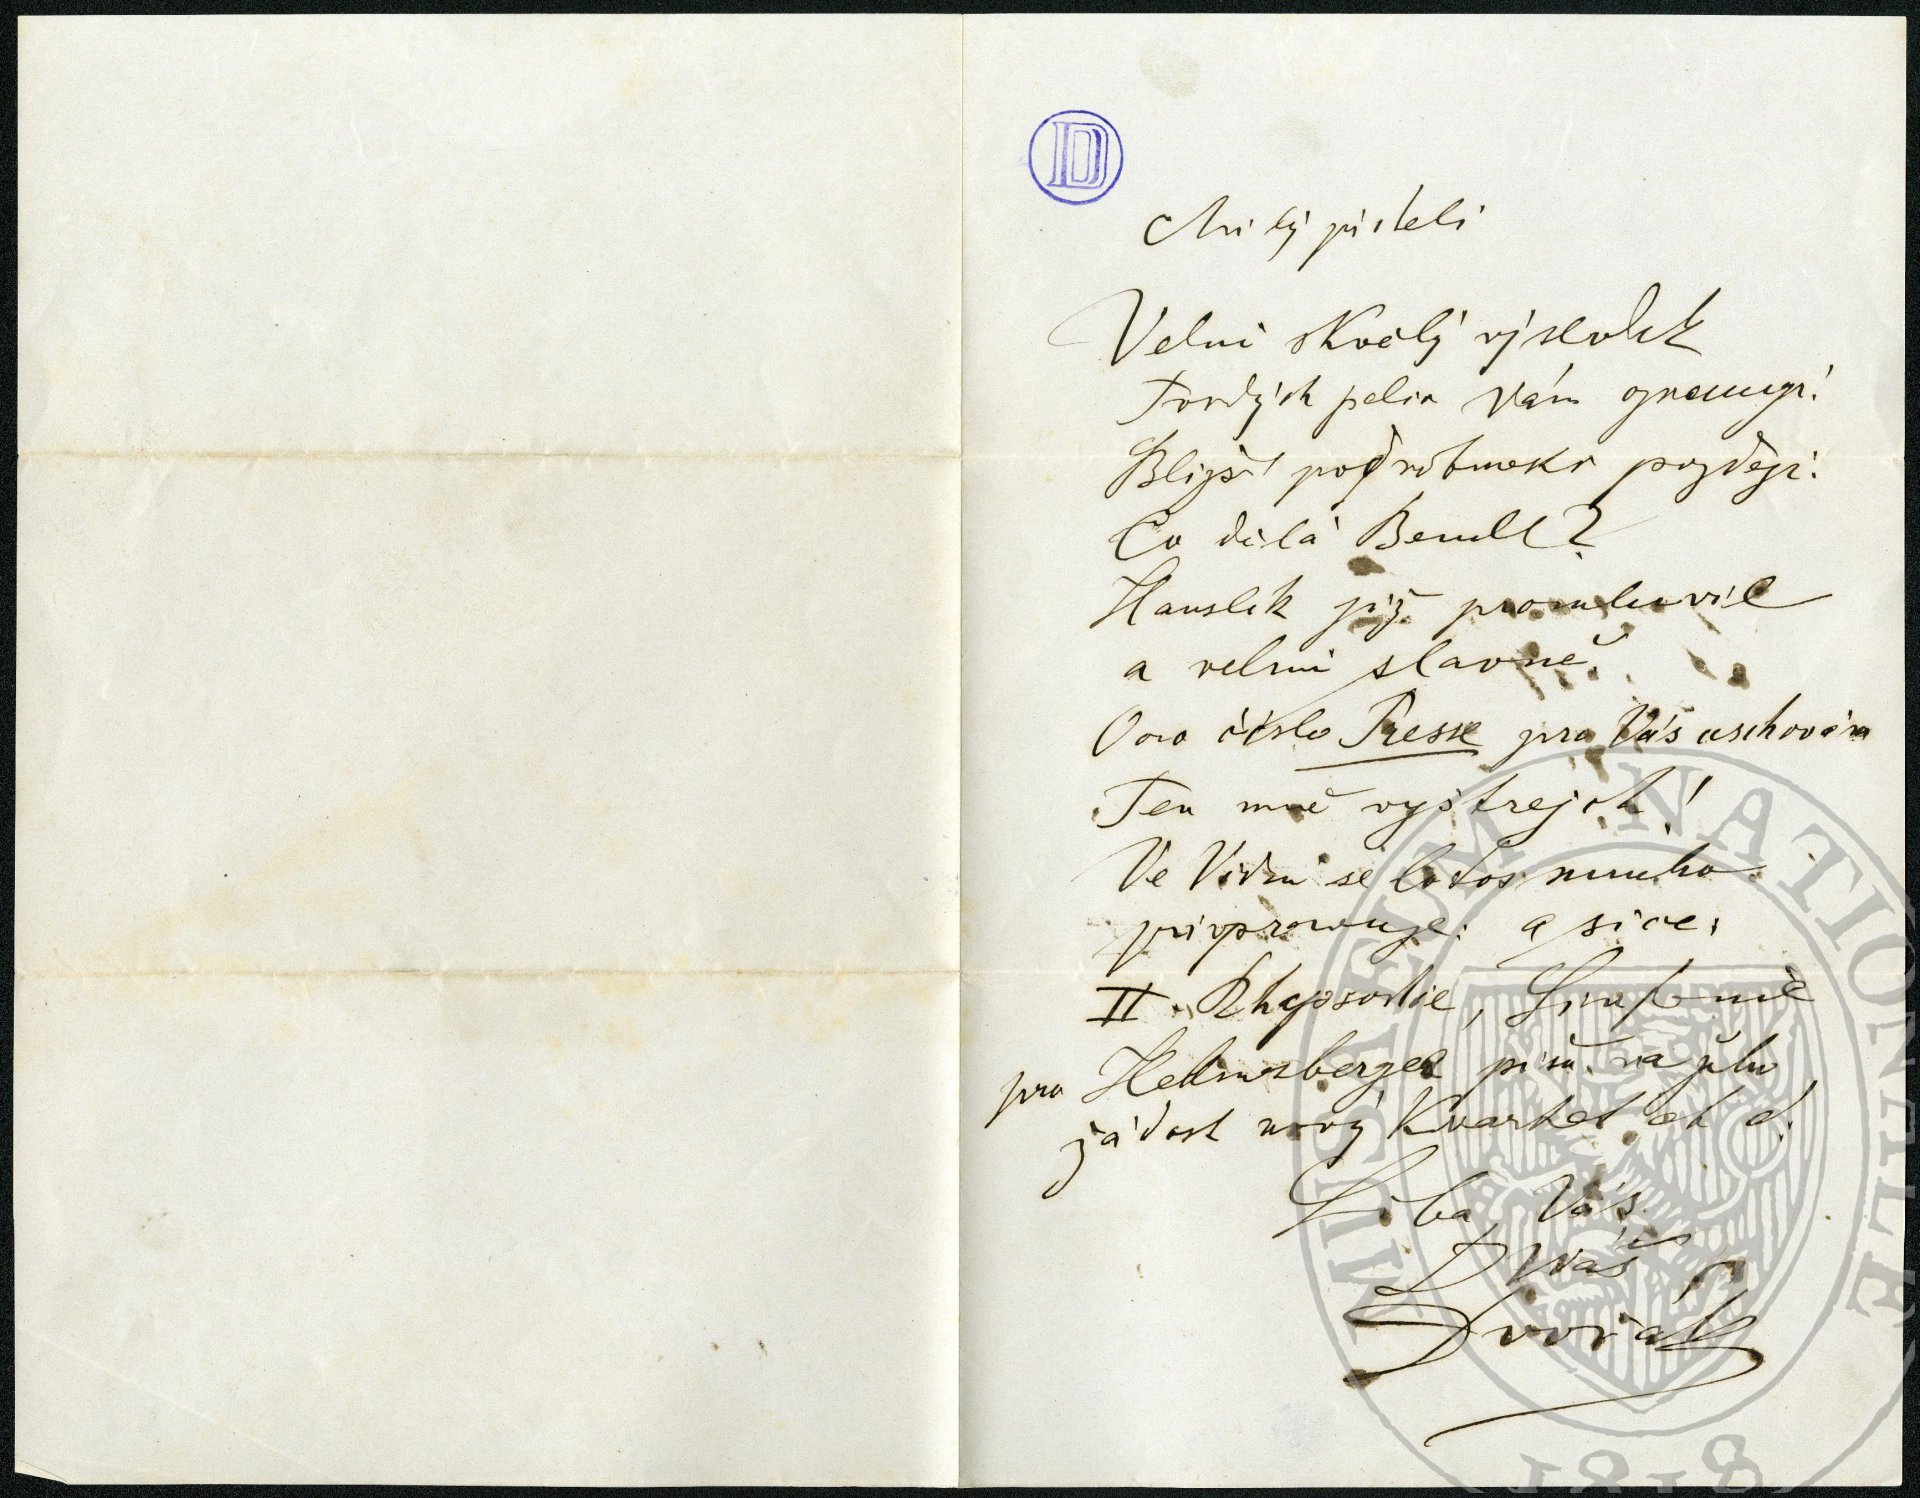 Milý příteli
Velmi skvělý výsledek
Tvrdých palic Vám oznamuji!
Bližší podrobnosti později.
Co dělá Bendl?
Hanslik již promluvil
a velmi slavně.
Ono číslo Presse pro Vás uschovám
Ten mně vystrejch!
Ve Vídni se letos mnoho
připravuje: a sice:
II. Rhapsodie, Sinfonie
pro Helmesberger píšu na jeho
žádost nový Kvartet et c.
Líbá Vás
Váš
Dvořák
D
MUSEUM NATIONALE
1818